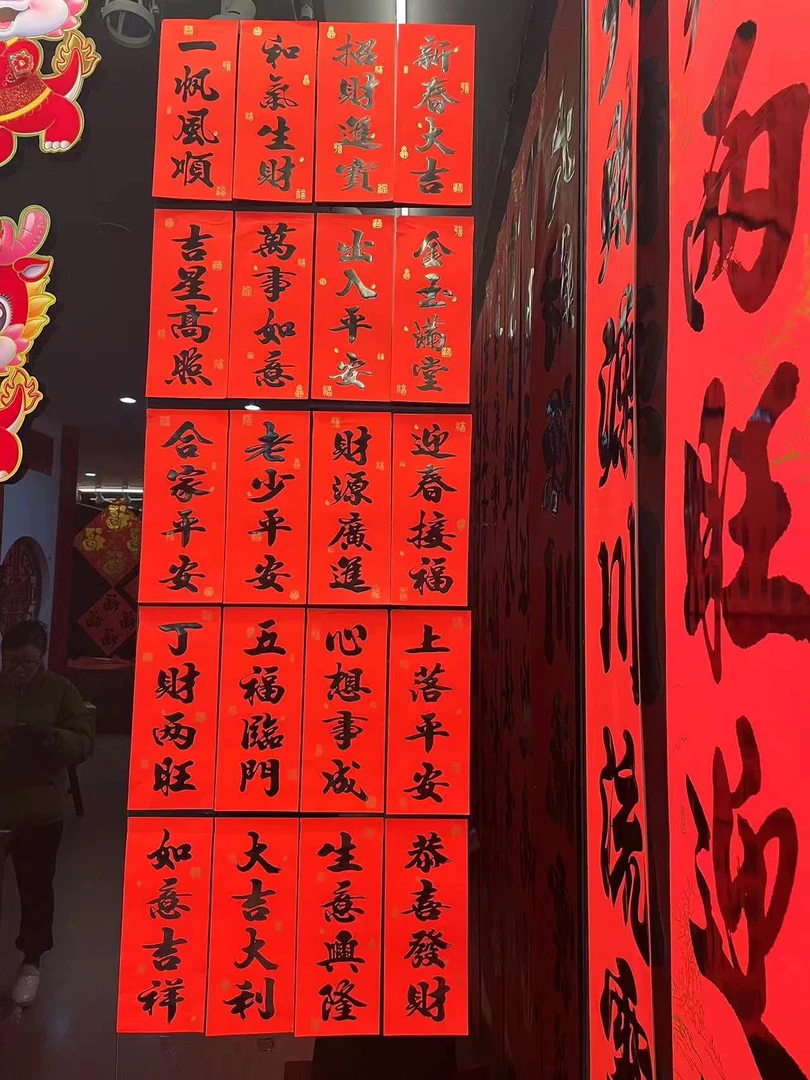 新春大吉
招財進寶
和氣生財
一帆風順
金玉滿堂
出入平安
萬事如意
吉星高照
迎春接福
財源廣進
老少平安
合家平安
上落平安
心想事成
五福臨門
丁財兩旺
恭喜發財
生意興隆
大吉大利
如意吉祥
旺迎
川流
福